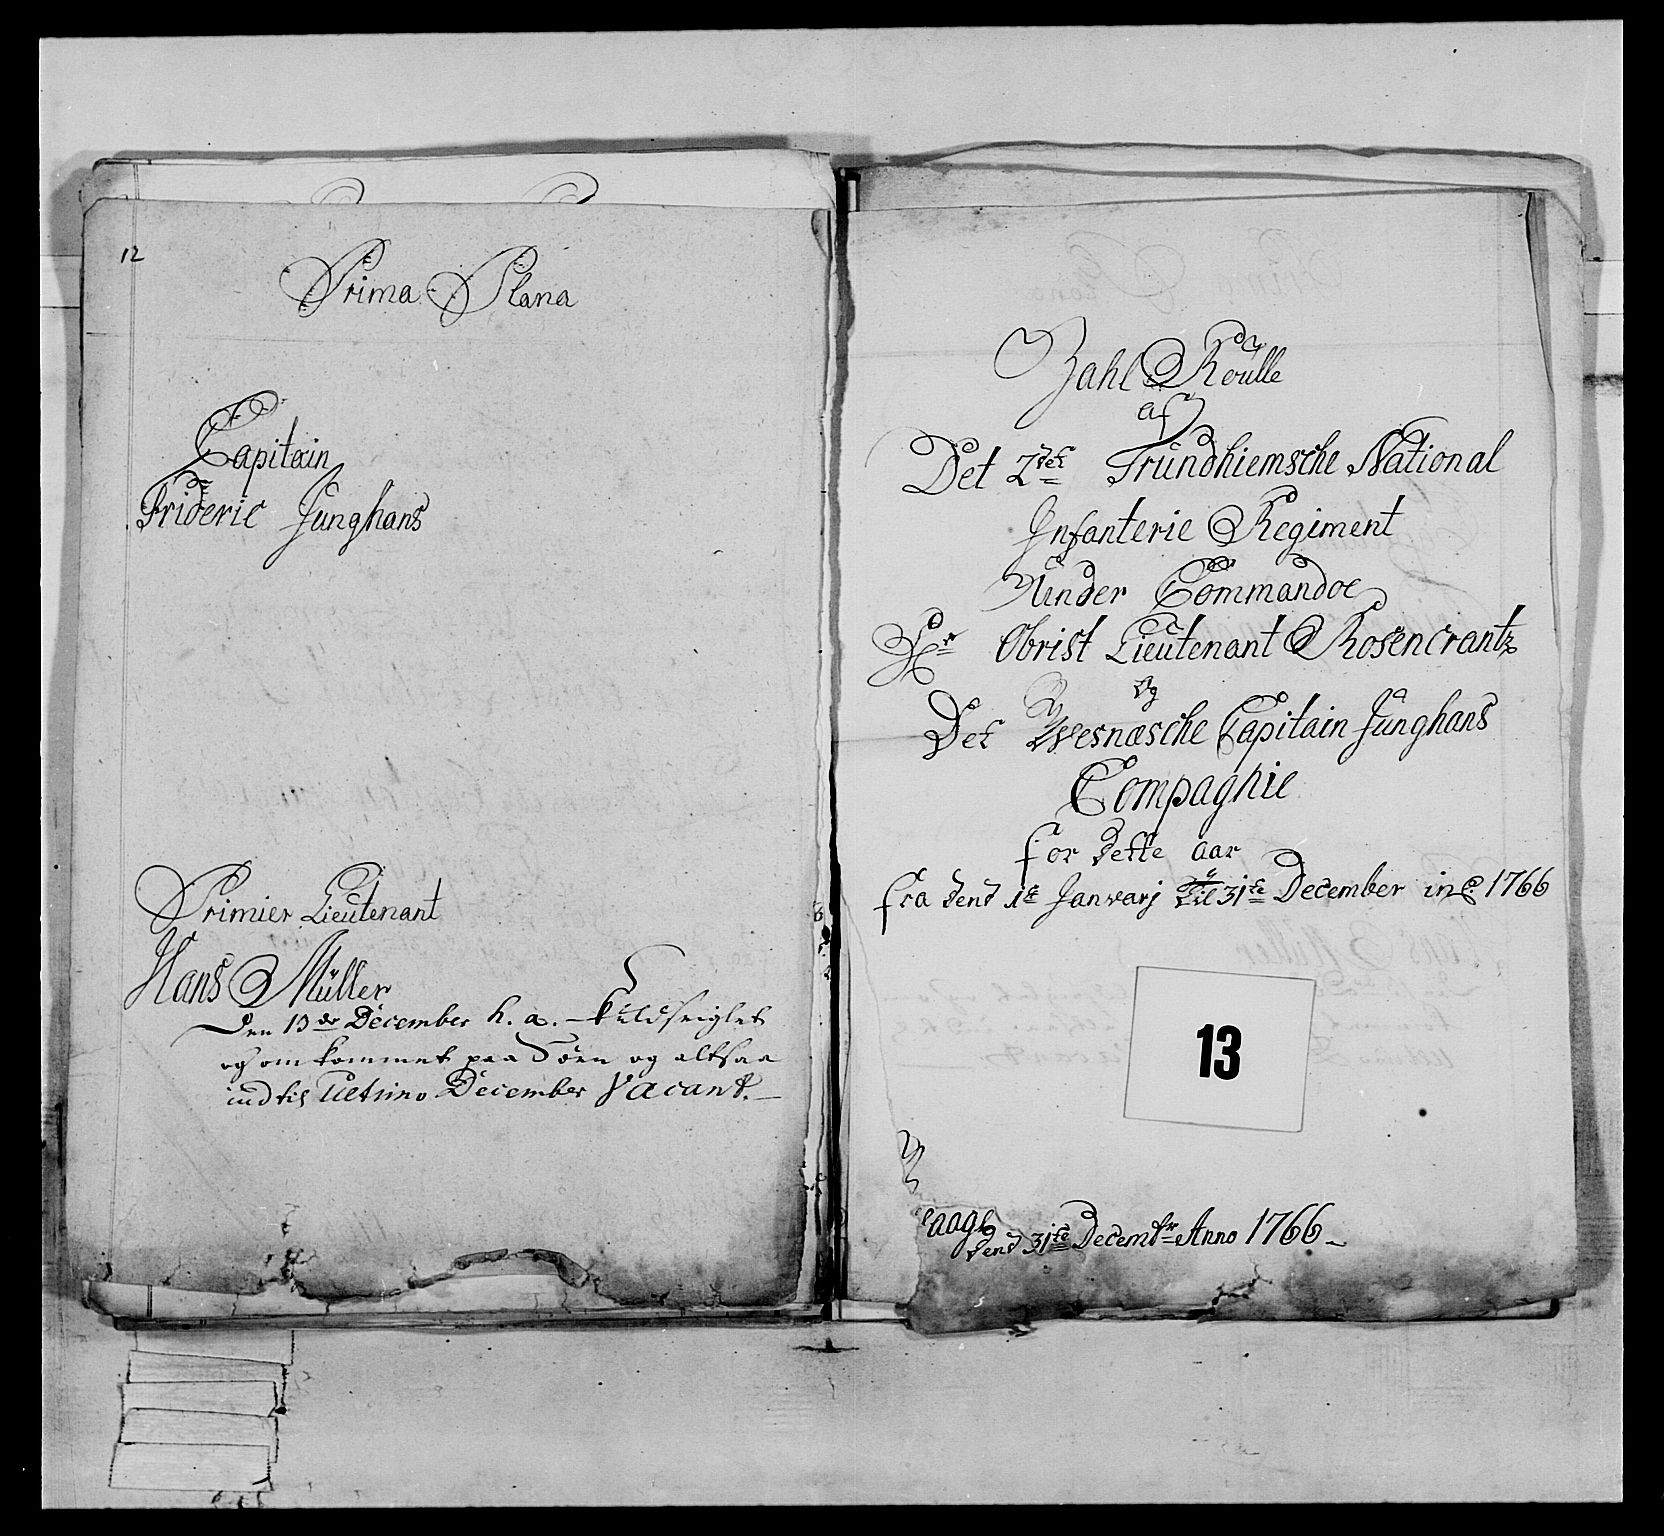 12
Prima Plana
Capitain
Frideric Junghans
Primier Lieutenant
Hans Müller
Den 13de December h. a. - kuldseiglet
og omkommet paa Söen og altsaa
indtil Ultimo December Vacant. -
Zahl Roulle
af
Det 2det Trundhiemsche National
Infanterie Regiment
Under Commandoe
Hr Obrist Lieutenant Rosencrantz
og
Det Wesnæsche Capitain Junghans
Compagnie
for dette aar
fra dend 1te Janvarj til 31te December inc: 1766
13
dend 31te Decembr Anno 1766 -